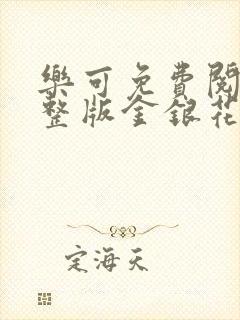 樂可免費閱
整版金銀花
定海天